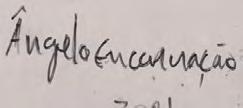 Ângelo Encarnação